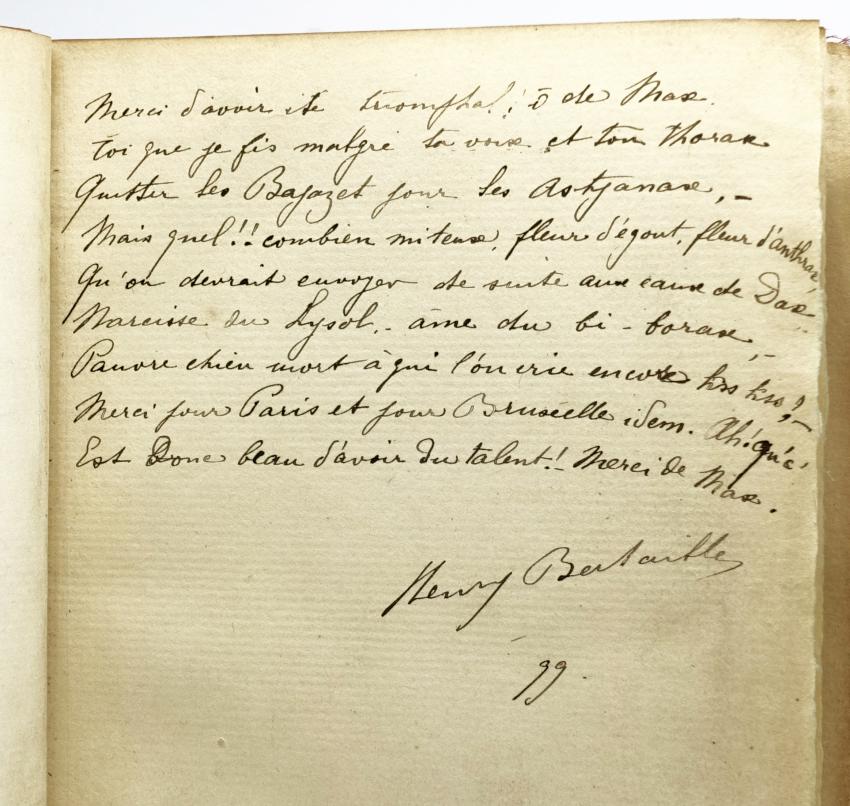 Merci d'avoir été triomphal! ô de Max.
toi que je fis malgré ta voix et ton thorax
Quitter les Bajazet pour les Astyanax, –
Mais quel!! combien miteux, fleur d'égout, fleur d'anthrax,
Qu'on devrait envoyer de suite aux eaux de Dax –
Narcisse du Lysol, – âme du bi-borax, –
Pauvre chien mort à qui l'on crie encore kss kss? –
Merci pour Paris et pour Bruxelle idem. Ah! qu'c'
Est Donc beau d'avoir du talent! – Merci de Max.
Henry Bataille
99.